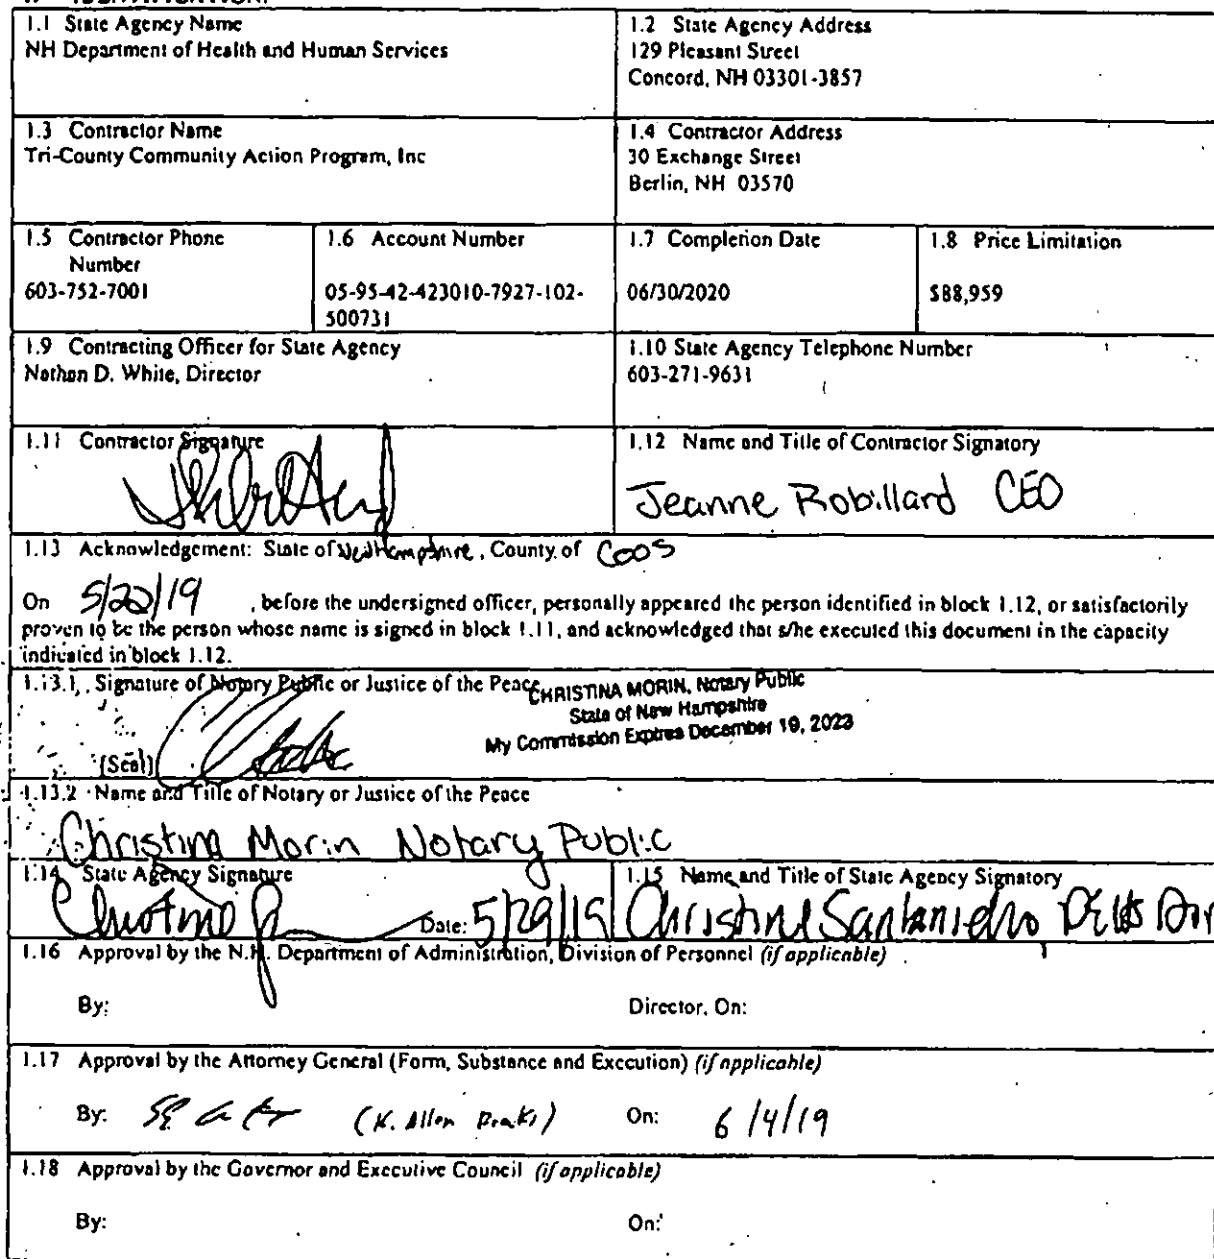 1.1 State Agency Name
NH Department of Health and Human Services
1.2 State Agency Address
129 Pleasant Street
Concord, NH 03301-3857
1.3 Contractor Name
Tri-County Community Action Program, Inc
1.4 Contractor Address
30 Exchange Street
Berlin, NH 03570
1.5 Contractor Phone
Number
603-752-7001
1.6 Account Number
05-95-42-423010-7927-102-
500731
1.7 Completion Date
06/30/2020
1.8 Price Limitation
$88,959
1.9 Contracting Officer for State Agency
Nathan D. White, Director
1.10 State Agency Telephone Number
603-271-9631
1.11 Contractor Signature
1.12 Name and Title of Contractor Signatory
Jeanne Robillard CEO
1.13 Acknowledgement: State of New Hampshire, County of Coos
On 5/22/19, before the undersigned officer, personally appeared the person identified in block 1.12, or satisfactorily
proven to be the person whose name is signed in block 1.11, and acknowledged that s/he executed this document in the capacity
indicated in block 1.12.
1.13.1 Signature of Notary Public or Justice of the Peace
CHRISTINA MORIN, Notary Public
State of New Hampshire
My Commission Expires December 19, 2023
[Seal]
1.13.2 Name and Title of Notary or Justice of the Peace
Christina Morin Notary Public
1.14 State Agency Signature
Date: 5/29/19
1.15 Name and Title of State Agency Signatory
Christine Santaniello
1.16 Approval by the N.H. Department of Administration, Division of Personnel (if applicable)
By:
Director, On:
1.17 Approval by the Attorney General (Form, Substance and Execution) (if applicable)
By: (K. Allen
On: 6/4/19
1.18 Approval by the Governor and Executive Council (if applicable)
By:
On: